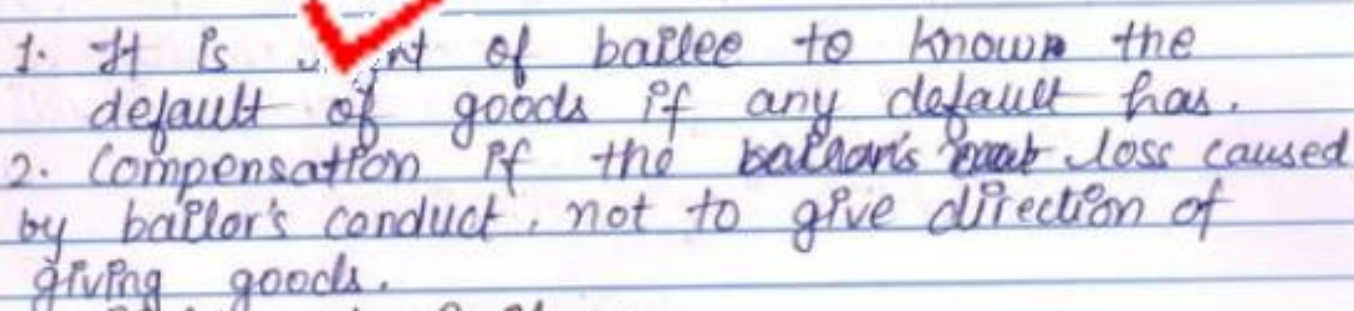 1. It is of bailee to known the
default of goods if any default has.
2. Compensation if the loss caused
by bailor's conduct, not to give direction of
giving goods.